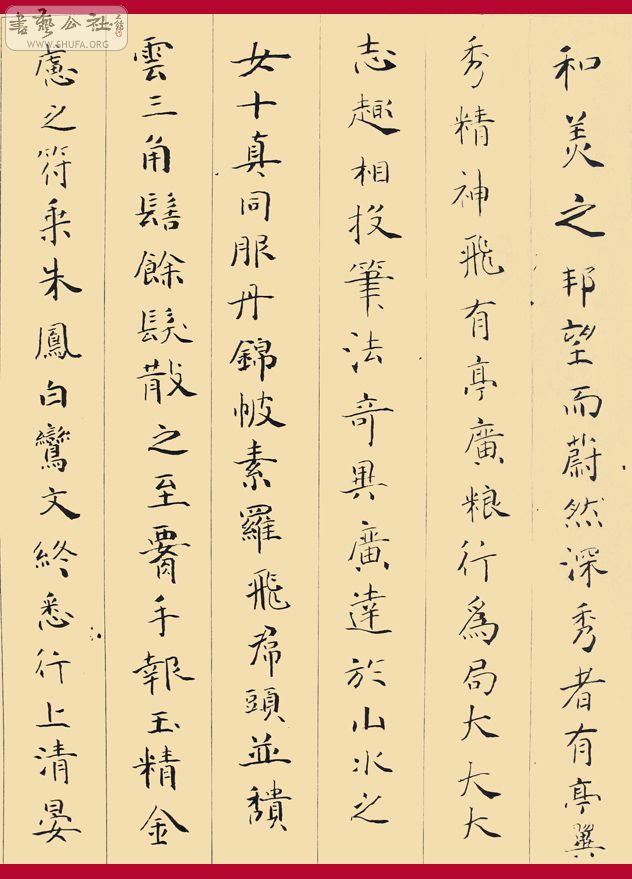 書藝公社
WWW.SHUFA.ORG
和美之邦望而蔚然深秀者有亭翼
秀精神飛有亭廣粮行為局大大大
志趣相投筆法奇異廣達於山水之
女十真同服丹錦帔素羅飛帬頭並頹
雲三角髻餘髮散之至腰手執玉精金
之符乘朱鳳白鸞文終悉行上清晏